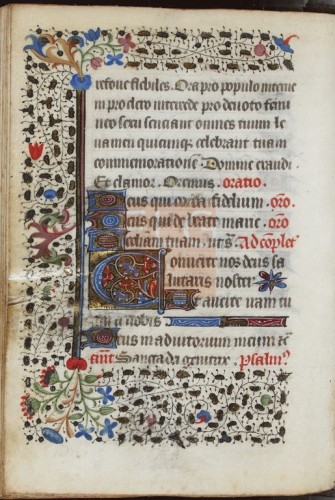 refove flebiles. Ora pro populo interve
ni pro clero intercede pro devoto femi
neo sexu senciant omnes tuum le
vamen quicunque celebrant tuam
commemorationē Domine exaudi.
Et clamor. Oremus. oratio.
Deus qui corda fidelium. orō
Deus qui de beate marie. orō
Ecclesiam tuam. ut sͣ. Ad complet̄
Converte nos deus sa
lutaris noster
Et averte iram tu
am a nobis
Deus in adiutorium meum īt̄
anͭ Sancta dei genitrix. Psalmꝰ